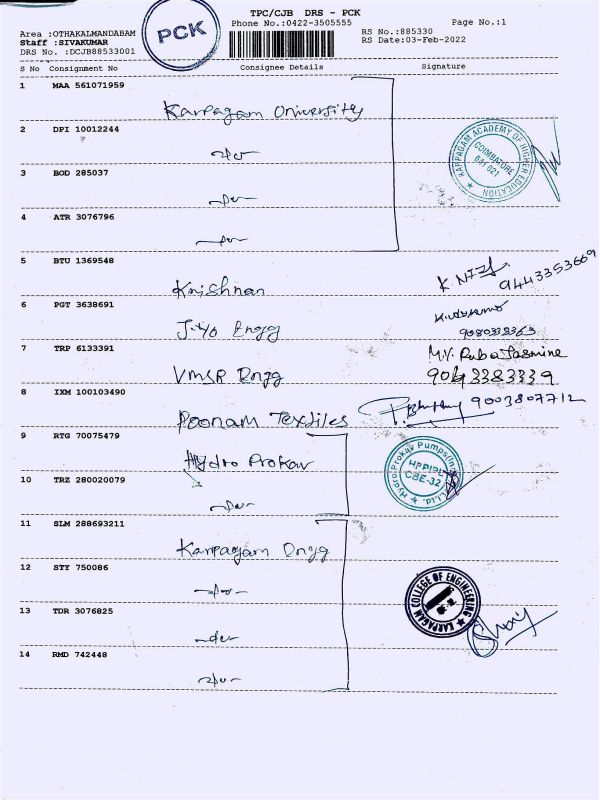 TPC/CJB DRS - PCK
Phone No.:0422-3505555
Page No.:1
PCK
Area :OTHAKALMANDABAM
Staff :SIVAKUMAR
DRS No. :DCJB88533001
RS No.:885330
RS Date:03-Feb-2022
S No Consignment No Consignee Details Signature
1 MAA 561071959
Karpagam University
2 DPI 10012244
3 BOD 285037
4 ATR 3076796
KARPAGAM ACADEMY OF HIGHER EDUCATION
COIMBATORE
641 021
5 BTU 1369548
Krishnan
9443353669
6 PGT 3638691
Engg
9080338365
7 TRP 6133391
VMSR Engg
M.V. Ruba Jasmine
9043383339
8 IXM 100103490
Poonam Textiles
9003807712
9 RTG 70075479
Hydro Prokav
Hydro Prokav Pumps
HPPIPL
CBE-32
10 TRZ 280020079
11 SLM 288693211
Karpagam Engg
12 STY 750086
KARPAGAM COLLEGE OF ENGINEERING
13 TDR 3076825
14 RMD 742448